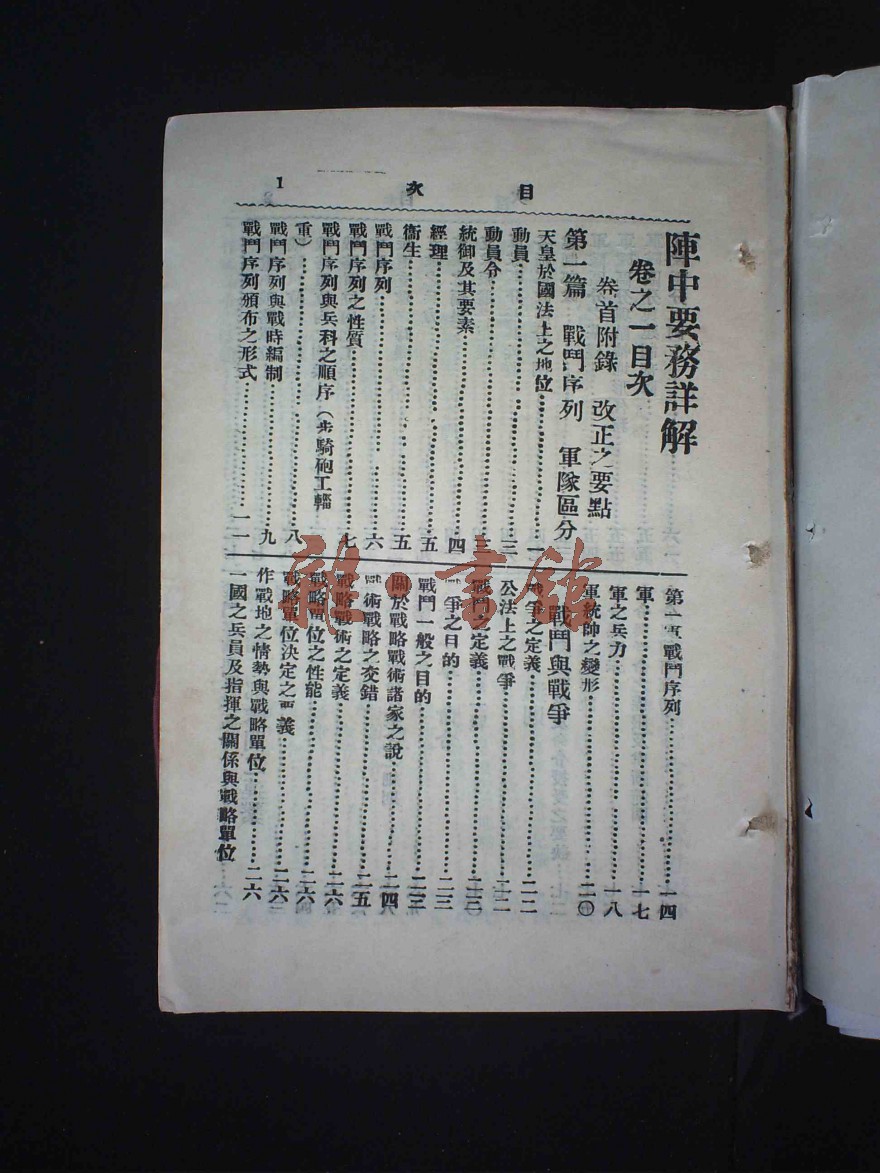 目次 1
陣中要務詳解
卷之一目次
卷首附錄 改正之要點
第一篇 戰鬥序列 軍隊區分
天皇於國法上之地位 一
動員 三
動員令
統御及其要素 四
經理 五
衞生 五
戰鬥序列 六
戰鬥序列之性質 七
戰鬥序列與兵科之順序(步騎砲工輜
重) 八
戰鬥序列與戰時編制 九
戰鬥序列頒布之形式 一一
第一 戰鬥序列 一四
軍 一七
軍之兵力 一八
軍統帥之變形 二〇
戰鬥與戰爭
戰爭之定義 二二
公法上之戰爭 二二
戰鬥之定義
爭之目的 二三
戰鬥一般之目的 二三
關於戰略戰術諸家之說 二四
術戰略之交錯 二五
戰略戰術之定義 二六
戰略單位之性能 二六
戰略單位決定之 義 二六
作戰地之情勢與戰略單位 二六
一國之兵員及指揮之關係與戰略單位
雜·書館